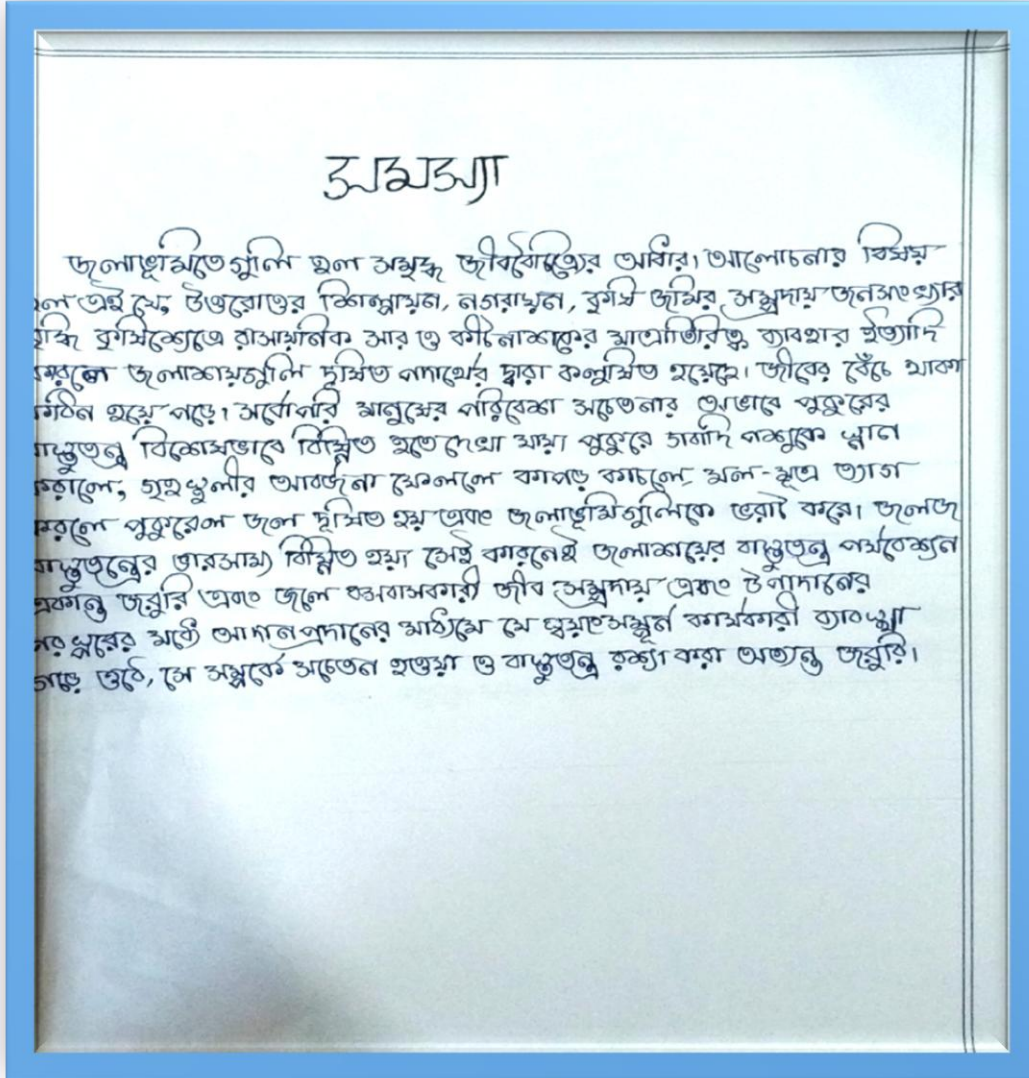 সমস্যা
জলাভূমিতেগুলি হল সমৃদ্ধ জীববৈচিত্র্যের আধার। আলোচনার বিষয়
হল এই যে, উত্তরোত্তর শিল্পায়ন, নগরায়ন, কৃষি জমির সম্প্রদায় জনসংখ্যার
বৃদ্ধি কৃষিক্ষেত্রে রাসায়নিক সার ও কীটনাশকের মাত্রাতিরিক্ত ব্যাবহার ইত্যাদি
করলে জলাশয়গুলি দূষিত পদার্থের দ্বারা কলুষিত হয়েছে। জীবের বেঁচে থাকা
কঠিন হয়ে পড়ে। সর্বোপরি মানুষের পরিবেশ সচেতনার অভাবে পুকুরের
বাস্তুতন্ত্র বিশেষভাবে বিঘ্নিত হতে দেখা যায়। পুকুরে গবাদি পশুকে স্নান
করালে, গৃহস্থলীর আবর্জনা ফেললে কাপড় কাচলে, মল-মূত্র ত্যাগ
করলে পুকুরেল জল দূষিত হয় এবং জলাভূমিগুলিকে ভরাট করে। জলজ
বাস্তুতন্ত্রের ভারসাম্য বিঘ্নিত হয়। সেই কারনেই জলাশয়ের বাস্তুতন্ত্র পর্যবেক্ষন
একান্ত জরুরি এবং জলে বসবাসকারী জীব সম্প্রদায় এবং উপাদানের
পরস্পরের মধ্যে আদানপ্রদানের মাধ্যমে যে স্বয়ংসম্পূর্ন কার্যকারী ব্যাবস্থা
গড়ে ওঠে, সে সম্পর্কে সচেতন হওয়া ও বাস্তুতন্ত্র রক্ষা করা অত্যন্ত জরুরি।